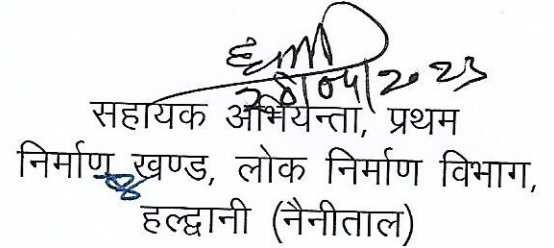 सहायक अभियन्ता, प्रथम
निर्माण खण्ड, लोक निर्माण विभाग,
हल्द्वानी (नैनीताल)